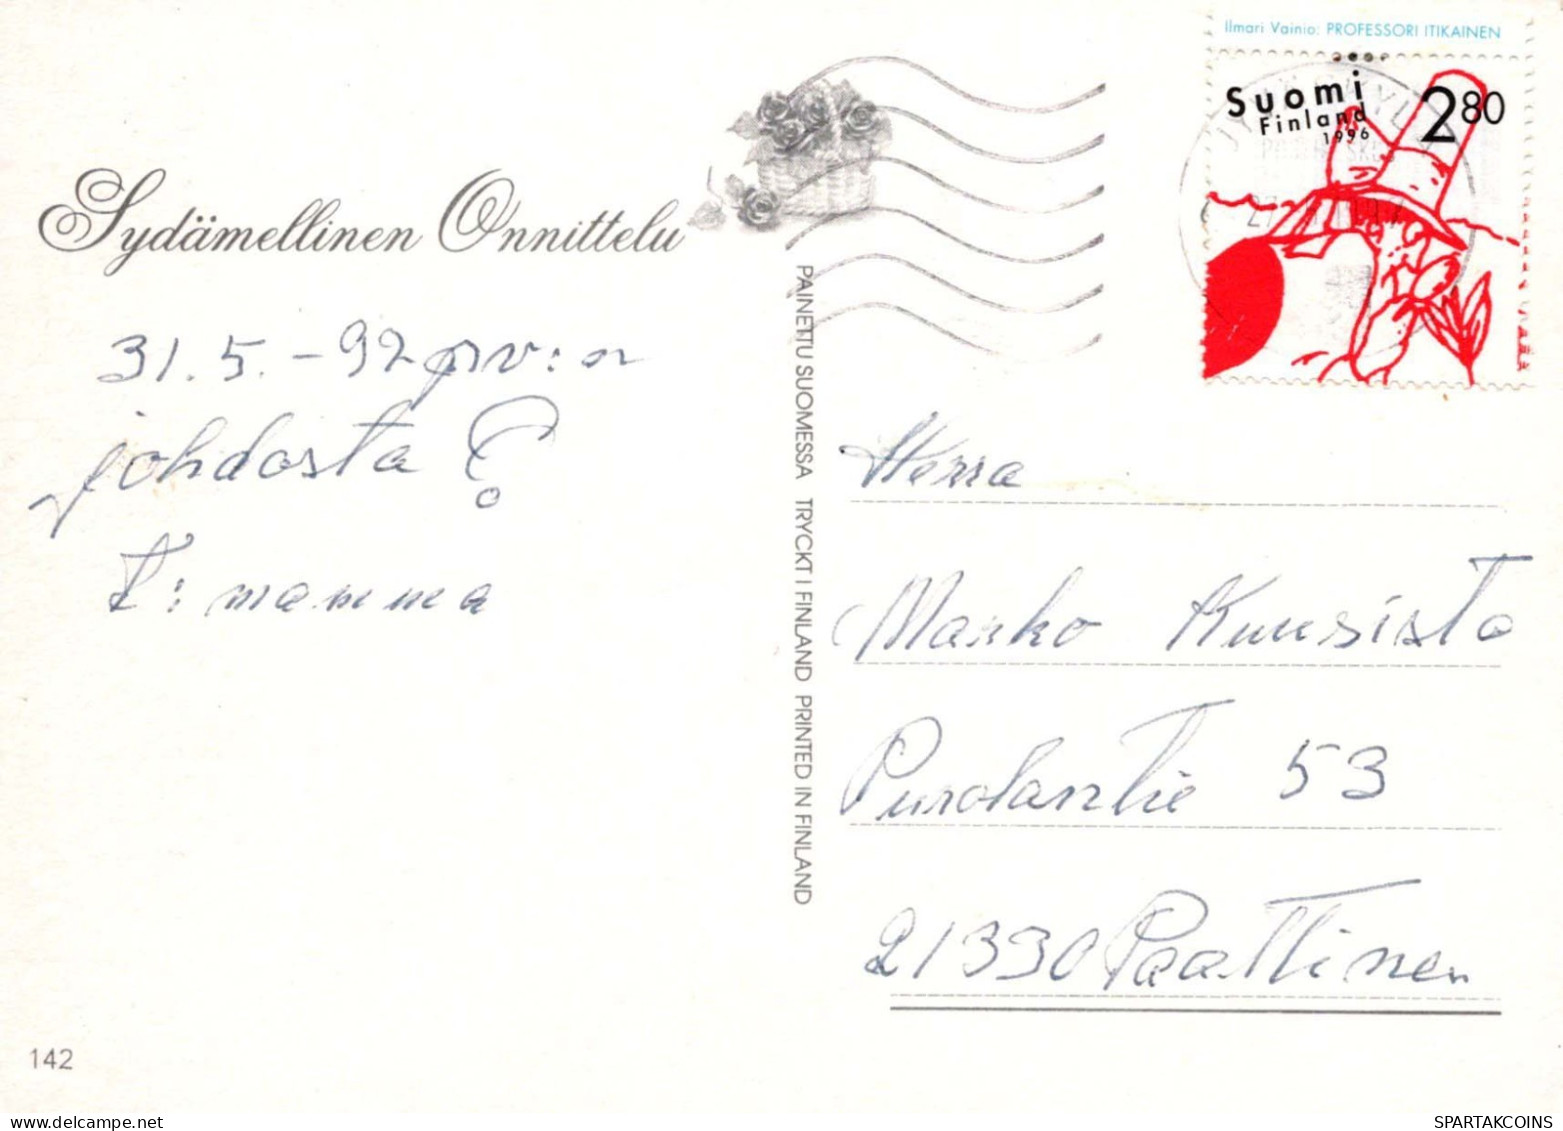 Ilmari Vainio: PROFESSORI ITIKAINEN
Suomi
Finland
1996
280
Sydämellinen Onnittelu
31.5.-97 pv:n
johdosta
T: mamma
PAINETTU SUOMESSA TRYCKT I FINLAND PRINTED IN FINLAND
Herra
Marko Kuusisto
Purolantie 53
21330 Paattinen
142
SPARTAKCOINS